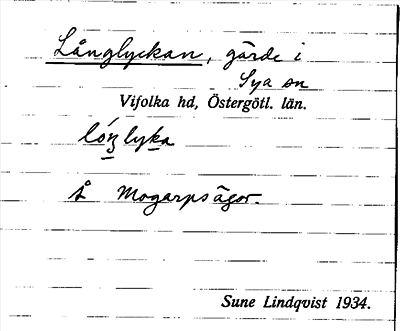 Långlyckan, gärde i
Sya sn
Vifolka hd, Östergötl. län.
lóŋlyka
å Mogarpsägor.
Sune Lindqvist 1934.